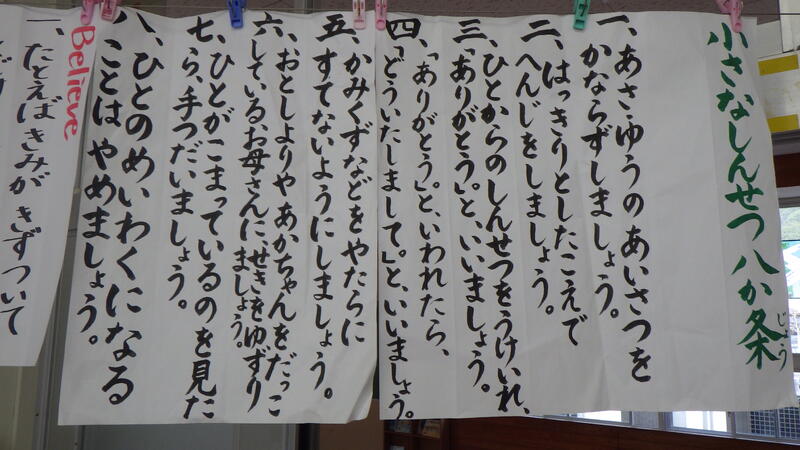 小さなしんせつ八か条
じょう
一、あさ、ゆうのあいさつを
かならずしましょう。
二、はっきりとしたこえで
へんじをしましょう。
三、ひとからのしんせつをうけいれ、
「ありがとう。」と、いいましょう。
四、「ありがとう。」と、いわれたら、
「どういたしまして。」と、いいましょう。
五、かみくずなどをやたらに
すてないようにしましょう。
六、おとしよりやあかちゃんをだっこ
しているお母さんに、せきをゆずり
ましょう。
七、ひとがこまっているのを見た
ら、手つだいましょう。
八、ひとのめいわくになる
ことはやめましょう。
Believe
一、たとえばきみがきずついて